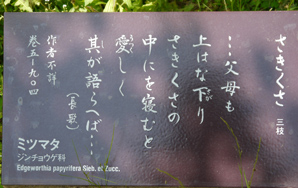 さきくさ 三枝
…父母も
上はな下り
さきくさの
中にを寝むと
愛しく
其が語らへば…
(長歌)
作者不詳
巻五-九〇四
ミツマタ
ジンチョウゲ科
Edgeworthia papyrifera Sieb. et Zucc.